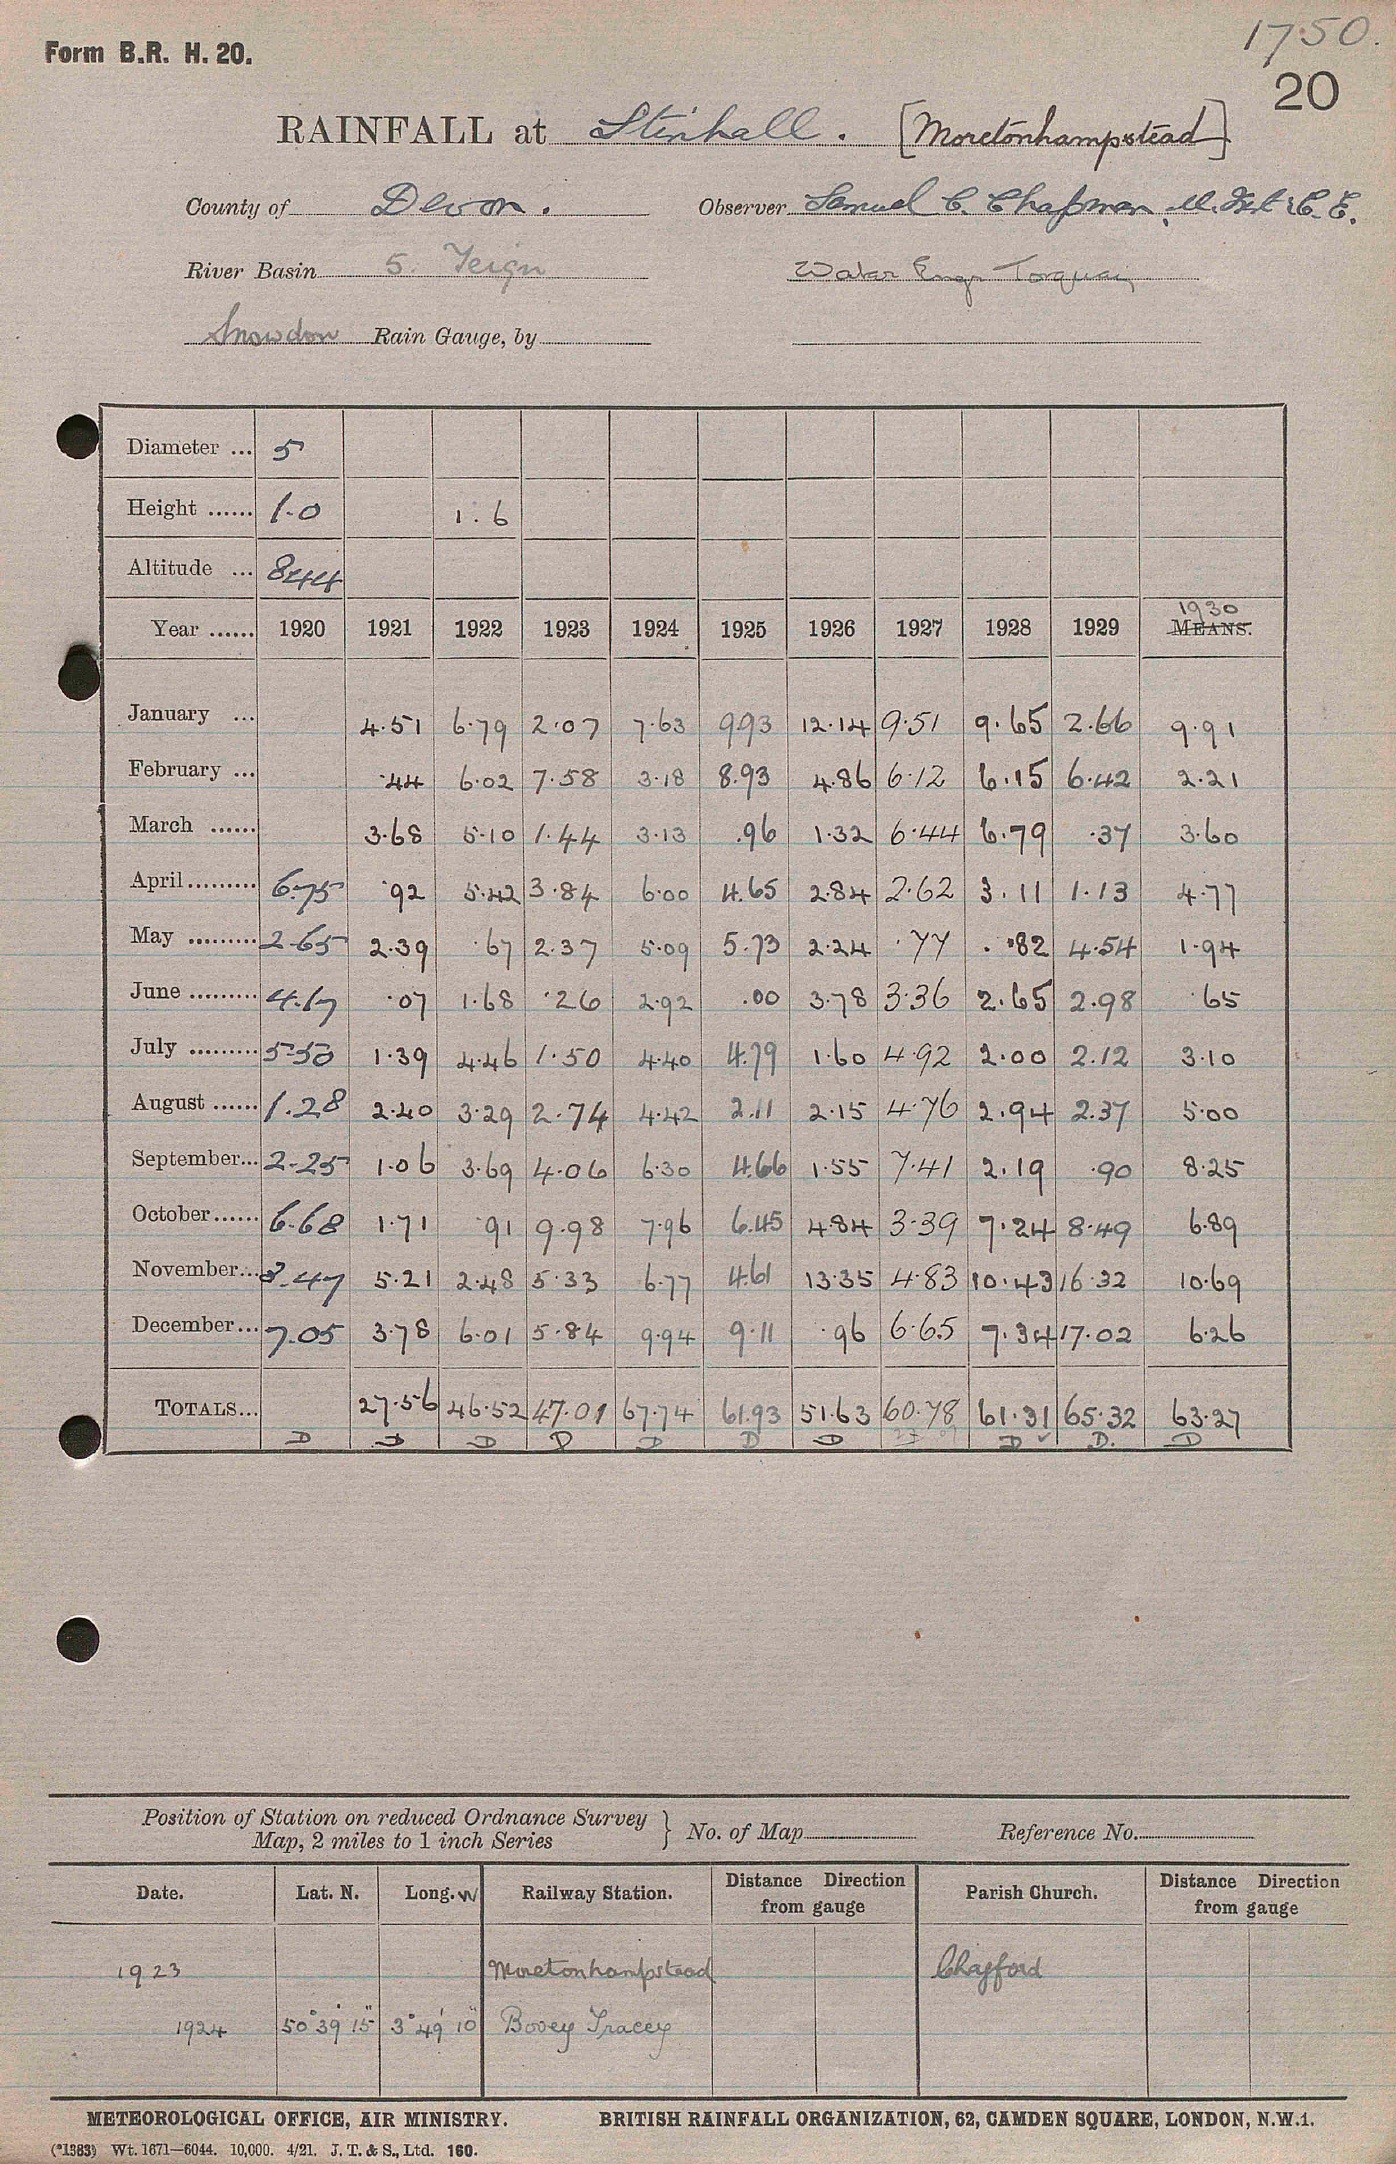 1750.
Form B.R. H. 20.
20
RAINFALL at Stinhall. [Moretonhampstead]
County of Devon. Observer Samuel C. Chapman, M. Inst C. E.
River Basin 5. Teign Water Engr Torquay
Snowdon Rain Gauge, by
Diameter ... 5
Height ...... 1.0 1.6
Altitude ... 844
1930
Year ...... 1920 1921 1922 1923 1924 1925 1926 1927 1928 1929 MEANS.
January ... 4.51 6.79 2.07 7.63 9.93 12.14 9.51 9.65 2.66 9.91
February ... .44 6.02 7.58 3.18 8.93 4.86 6.12 6.15 6.42 2.21
March ...... 3.68 5.10 1.44 3.13 .96 1.32 6.44 6.79 .37 3.60
April ......... 6.75 .92 5.42 3.84 6.00 4.65 2.84 2.62 3.11 1.13 4.77
May ......... 2.65 2.39 .67 2.37 5.09 5.73 2.24 .77 .82 4.54 1.94
June ......... 4.17 .07 1.68 .26 2.92 .00 3.78 3.36 2.65 2.98 .65
July ......... 5.50 1.39 4.46 1.50 4.40 4.79 1.60 4.92 2.00 2.12 3.10
August ...... 1.28 2.40 3.29 2.74 4.42 2.11 2.15 4.76 2.94 2.37 5.00
September... 2.25 1.06 3.69 4.06 6.30 4.66 1.55 7.41 2.19 .90 8.25
October...... 6.68 1.71 .91 9.98 7.96 6.45 4.84 3.39 7.24 8.49 6.89
November... 3.47 5.21 2.48 5.33 6.77 4.61 13.35 4.83 10.43 16.32 10.69
December... 7.05 3.78 6.01 5.84 9.94 9.11 .96 6.65 7.34 17.02 6.26
TOTALS... 27.56 46.52 47.01 67.74 61.93 51.63 60.78 61.31 65.32 63.27
D D D D D D D D D D. D
Position of Station on reduced Ordnance Survey
Map, 2 miles to 1 inch Series } No. of Map Reference No.
Date. Lat. N. Long. W Railway Station. Distance Direction from gauge Parish Church. Distance Direction from gauge
1923 Moretonhampstead Chagford
1924 50° 39' 15" 3° 49' 10" Bovey Tracey
METEOROLOGICAL OFFICE, AIR MINISTRY. BRITISH RAINFALL ORGANIZATION, 62, CAMDEN SQUARE, LONDON, N.W.1.
(*1383) Wt. 1671—6044. 10,000. 4/21. J. T. & S., Ltd. 160.